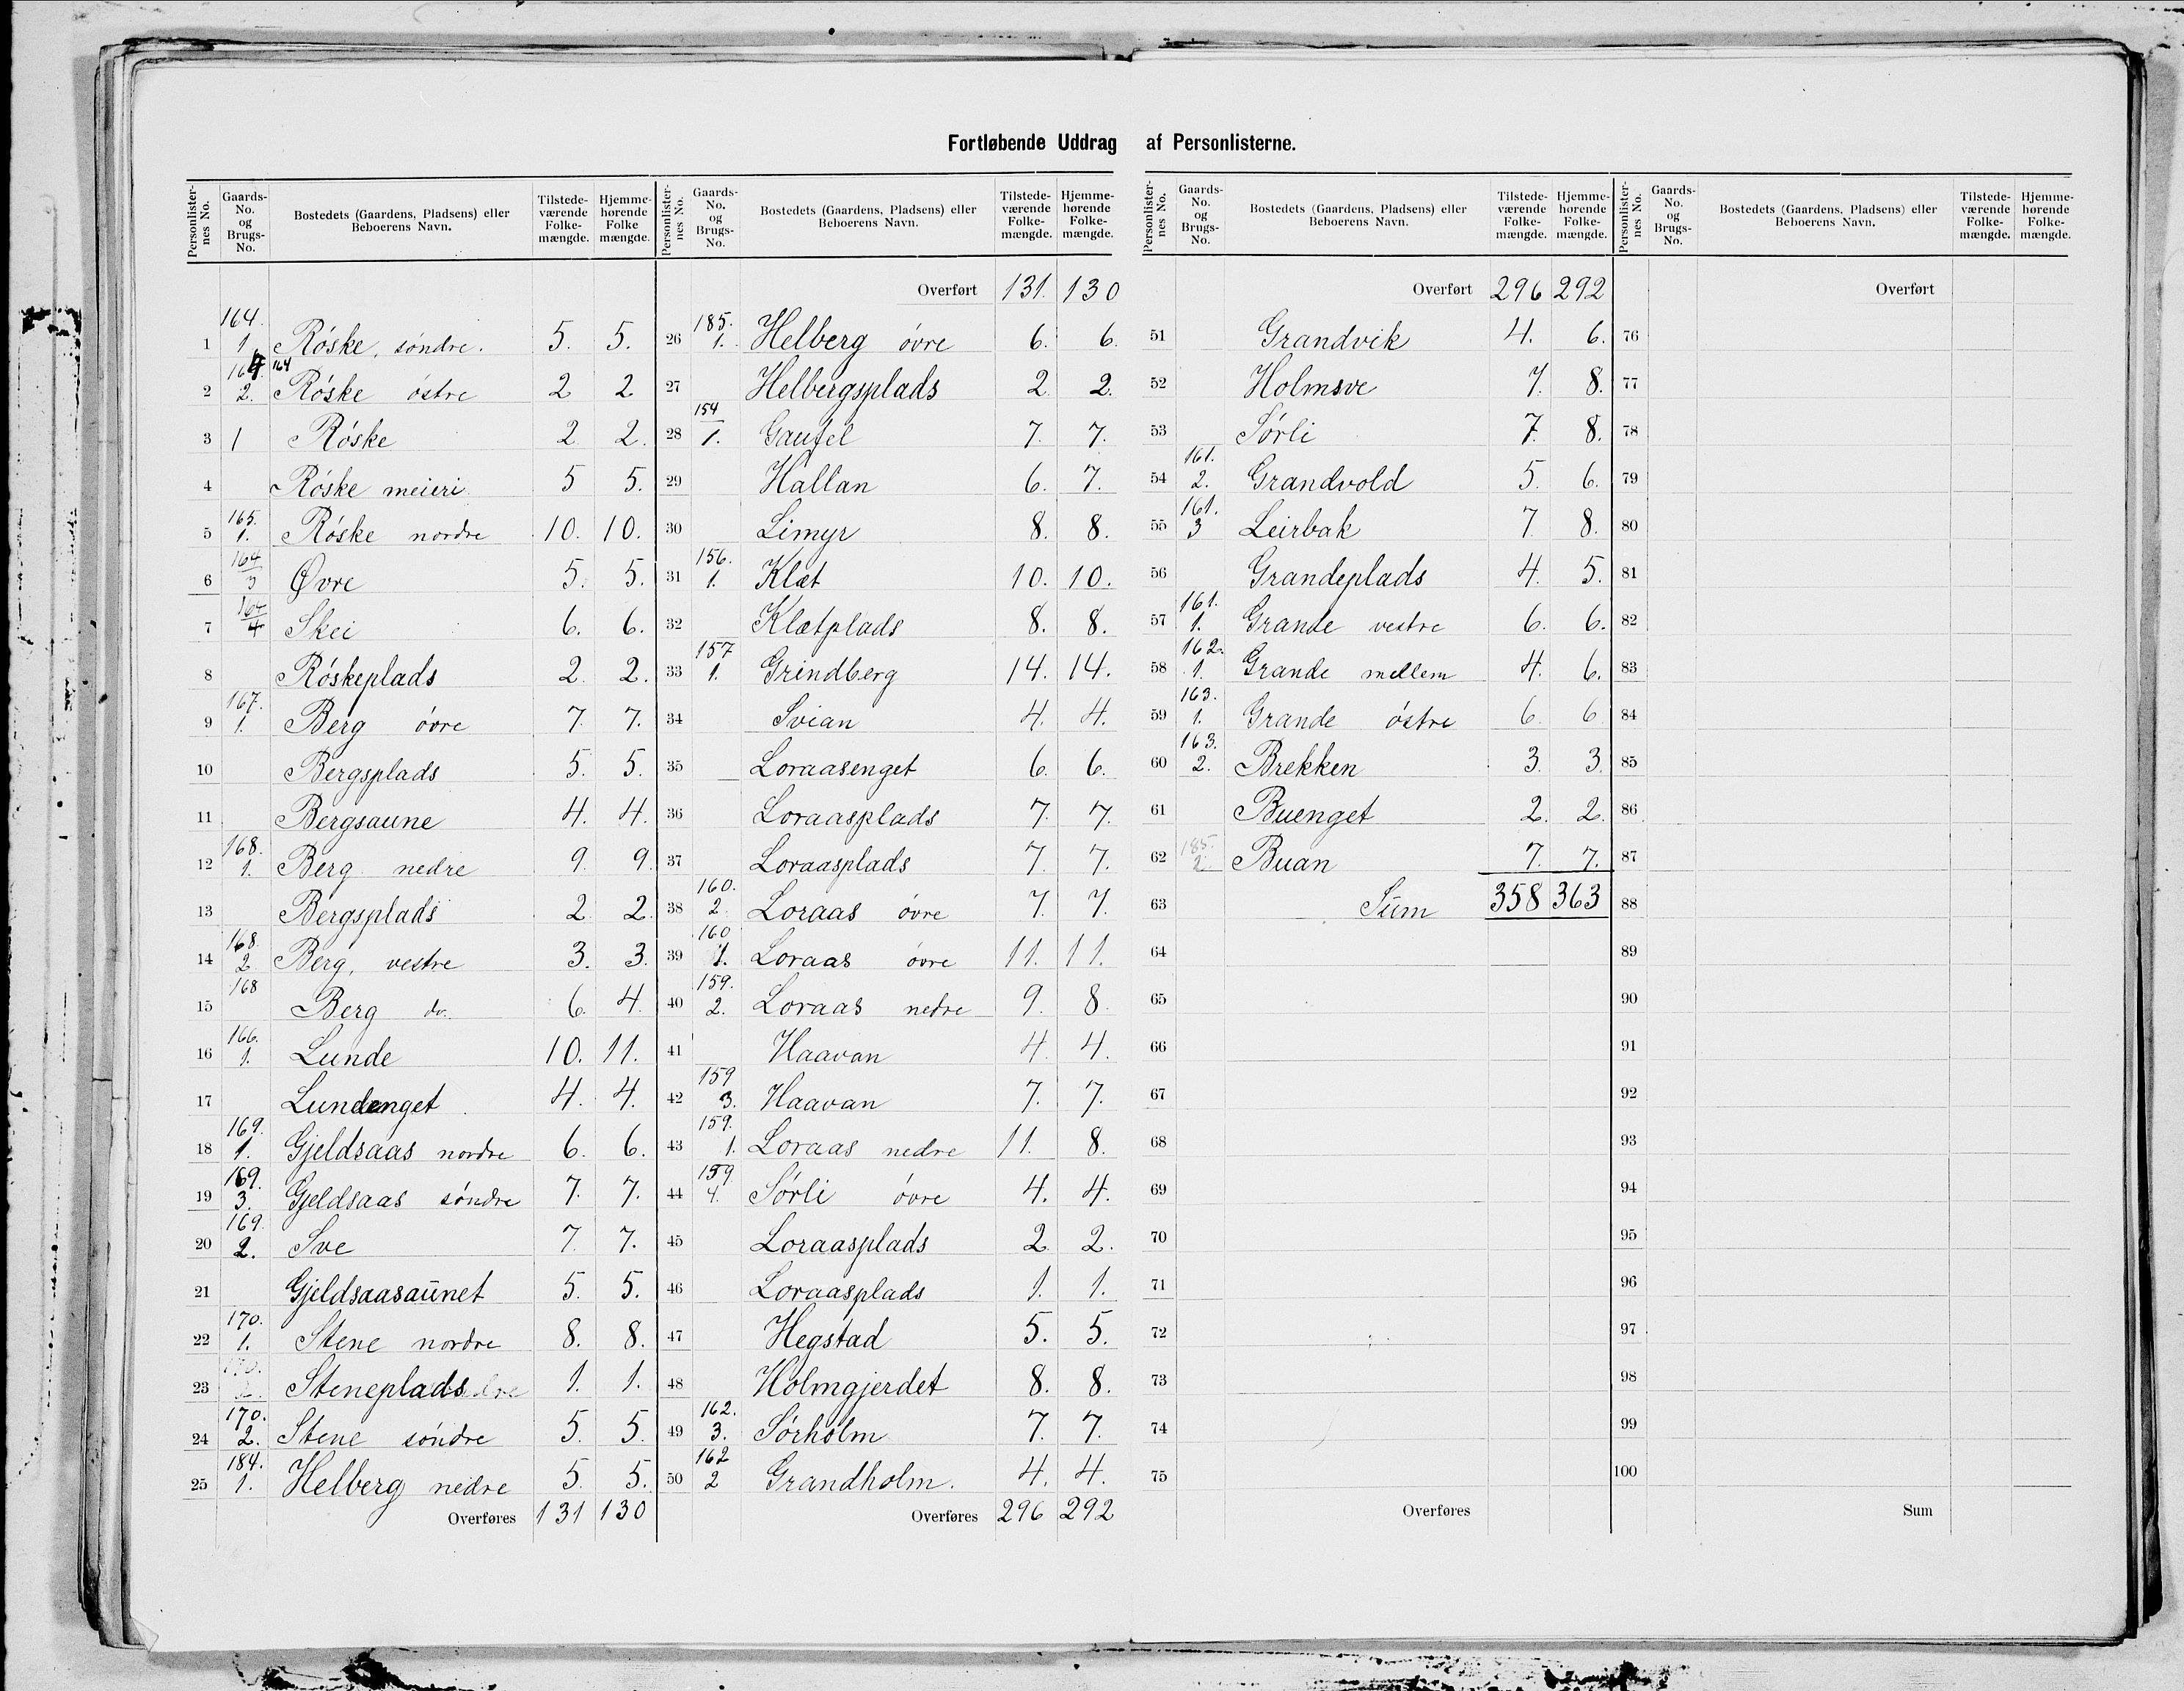 Fortløbende Uddrag af Personlisterne.
Personlister-nes No. | Gaards-No. og Brugs-No. | Bostedets (Gaardens, Pladsens) eller Beboerens Navn. | Tilstede-værende Folke-mængde. | Hjemme-hørende Folke mængde.
1 | 164. 1. | Røske, søndre. | 5. | 5.
2 | 164. 2. | 164 Røske østre | 2 | 2
3 | 1 | Røske | 2 | 2.
4 | | Røske meieri. | 5 | 5.
5 | 165. 1. | Røske nordre | 10. | 10.
6 | 164 3 | Øvre | 5. | 5.
7 | 164 4 | Skei | 6. | 6.
8 | | Røskeplads | 2. | 2.
9 | 167. 1. | Berg øvre | 7. | 7.
10 | | Bergsplads | 5. | 5.
11 | | Bergsaune | 4. | 4.
12 | 168. 1. | Berg nedre | 9. | 9.
13 | | Bergsplads | 2. | 2.
14 | 168. 2 | Berg, vestre | 3. | 3.
15 | 168 | Berg do. | 6. | 4.
16 | 166. 1. | Lunde | 10. | 11.
17 | | Lundenget | 4. | 4.
18 | 169. 1. | Gjeldsaas nordre | 6. | 6.
19 | 169. 3. | Gjeldsaas søndre | 7. | 7.
20 | 169. 2. | Sve | 7. | 7.
21 | | Gjeldsaasaūnet | 5. | 5.
22 | 170. 1. | Stene nordre | 8. | 8.
23 | 170. | Steneplads | 1. | 1.
24 | 170. 2. | Stene søndre | 5. | 5.
25 | 184. 1. | Helberg nedre | 5. | 5.
Overføres | 131 | 130
Personlister-nes No. | Gaards-No. og Brugs-No. | Bostedets (Gaardens, Pladsens) eller Beboerens Navn. | Tilstede-værende Folke-mængde. | Hjemme-hørende Folke-mængde.
Overført | 131. | 130
26 | 185. 1. | Helberg øvre | 6. | 6.
27 | | Helbergsplads | 2. | 2.
28 | 154 1. | Gaufel | 7. | 7.
29 | | Hallan | 6. | 7.
30 | | Limyr | 8. | 8.
31 | 156. 1. | Klæt | 10. | 10.
32 | | Klætplads | 8. | 8.
33 | 157 1. | Grindberg | 14. | 14.
34 | | Svian | 4. | 4.
35 | | Loraasenget | 6. | 6.
36 | | Loraasplads | 7. | 7.
37 | | Loraasplads | 7. | 7.
38 | 160. 2 | Loraas øvre | 7. | 7.
39 | 160 1. | Loraas øvre | 11. | 11.
40 | 159. 2. | Loraas nedre | 9. | 8.
41 | | Haavan | 4. | 4.
42 | 159 3. | Haavan | 7. | 7.
43 | 159. 1. | Loraas nedre | 11. | 8.
44 | 159 4. | Sørli øvre | 4. | 4.
45 | | Loraasplads | 2. | 2.
46 | | Loraasplads | 1. | 1.
47 | | Hegstad | 5. | 5.
48 | | Holmgjerdet | 8. | 8.
49 | 162. 3. | Sørholm | 7. | 7.
50 | 162 2 | Grandholm. | 4. | 4.
Overføres | 296 | 292
Personlister-nes No. | Gaards-No. og Brugs-No. | Bostedets (Gaardens, Pladsens) eller Beboerens Navn. | Tilstede-værende Folke-mængde. | Hjemme-hørende Folke-mængde.
Overført | 296 | 292
51 | | Grandvik | 4. | 6.
52 | | Holmsve | 7. | 8.
53 | | Sørli | 7. | 8.
54 | 161. 2. | Grandvold | 5. | 6.
55 | 161. 3 | Leirbak | 7 | 8.
56 | | Grandeplads | 4. | 5.
57 | 161. 1. | Grande vestre | 6. | 6.
58 | 162. 1. | Grande mellem | 4. | 6.
59 | 163. 1. | Grande østre | 6. | 6
60 | 163. 2. | Brekken | 3. | 3.
61 | | Buenget | 2. | 2.
62 | 185. 2. | Buan | 7. | 7.
63 | | Sūm | 358 | 363
64
65
66
67
68
69
70
71
72
73
74
75
Overføres
Personlister-nes No. | Gaards-No. og Brugs-No. | Bostedets (Gaardens, Pladsens) eller Beboerens Navn. | Tilstede-værende Folke-mængde. | Hjemme-hørende Folke-mængde.
Overført
76
77
78
79
80
81
82
83
84
85
86
87
88
89
90
91
92
93
94
95
96
97
98
99
100
Sum